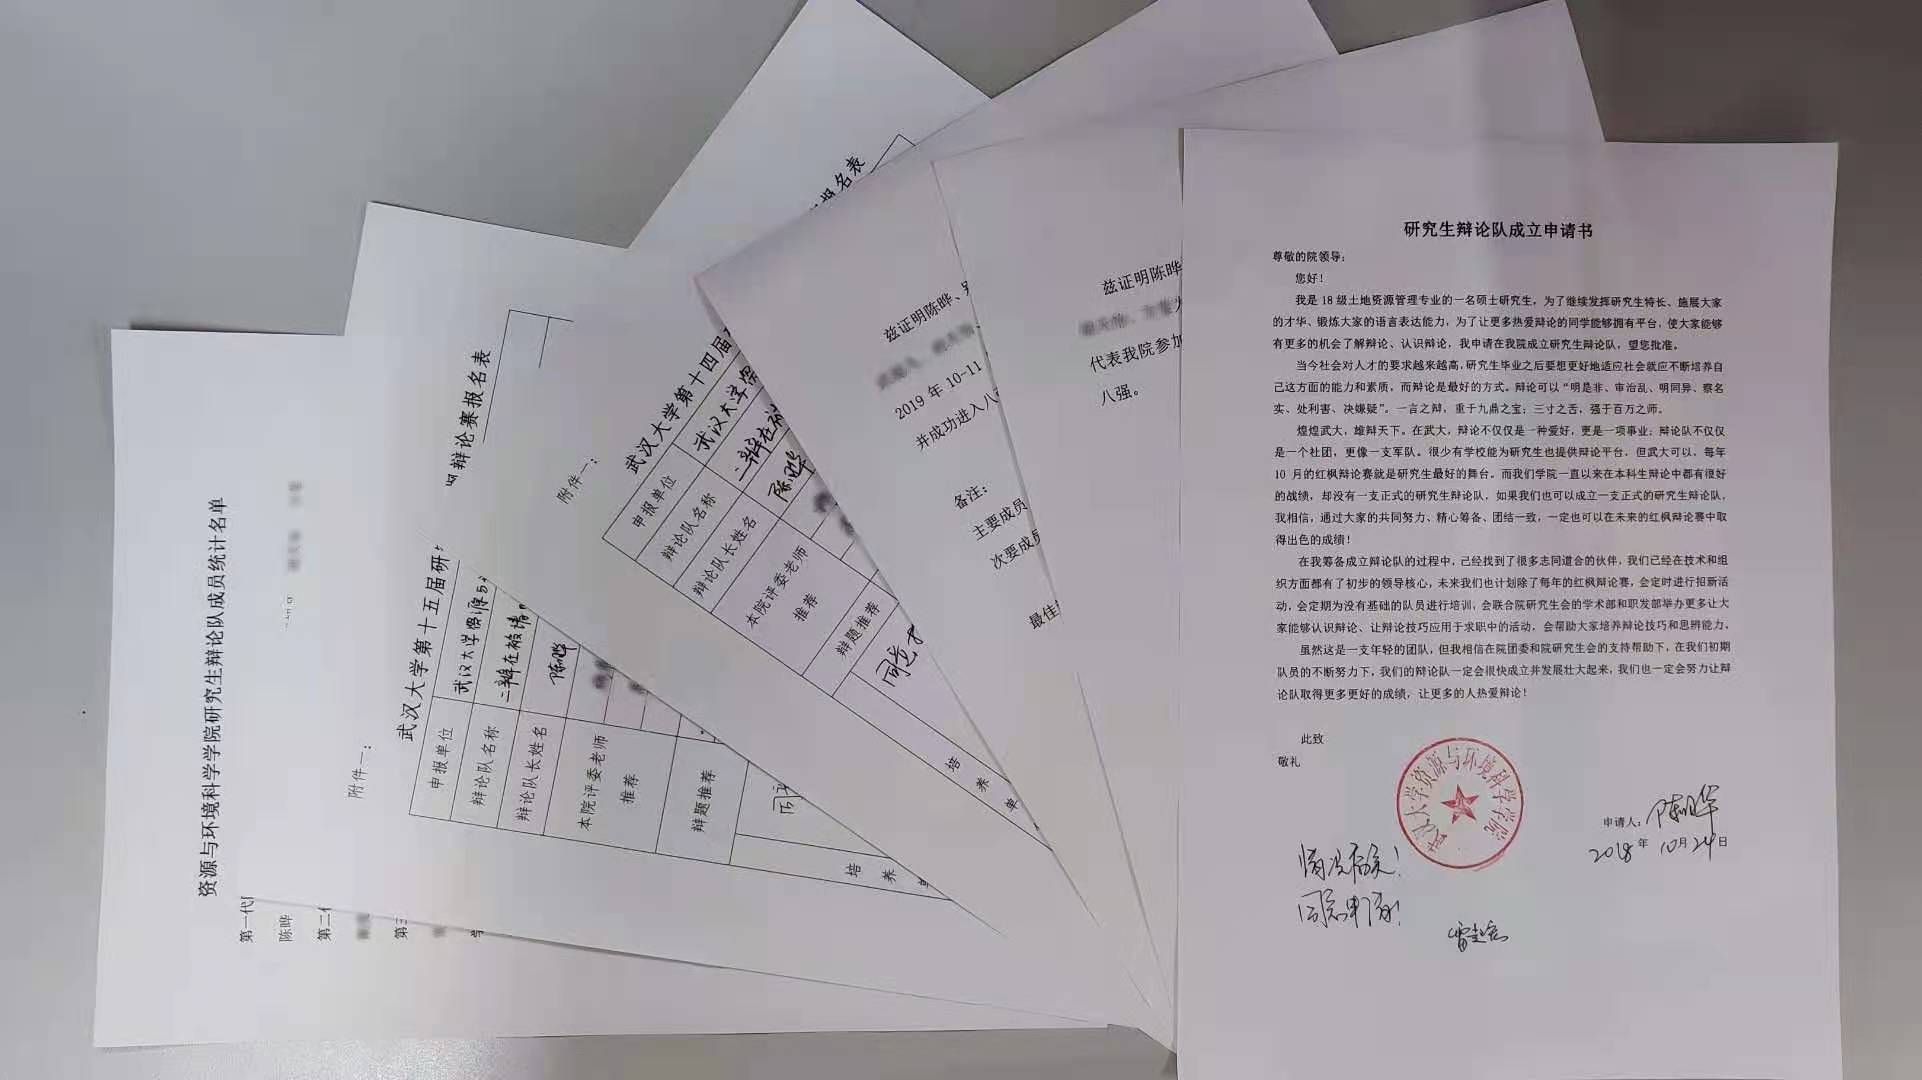 研究生辩论队成立申请书
尊敬的院领导：
您好！
我是 18 级土地资源管理专业的一名硕士研究生，为了继续发挥研究生特长、施展大家
的才华、锻炼大家的语言表达能力，为了让更多热爱辩论的同学能够拥有平台，使大家能够
有更多的机会了解辩论、认识辩论，我申请在我院成立研究生辩论队，望您批准。
当今社会对人才的要求越来越高，研究生毕业之后要想更好地适应社会就应不断培养自
己这方面的能力和素质，而辩论是最好的方式。辩论可以“明是非、审治乱、明同异、察名
实、处利害、决嫌疑”。一言之辩，重于九鼎之宝；三寸之舌，强于百万之师。
煌煌武大，雄辩天下。在武大，辩论不仅仅是一种爱好，更是一项事业；辩论队不仅仅
是一个社团，更像一支军队。很少有学校能为研究生也提供辩论平台，但武大可以，每年
10 月的红枫辩论赛就是研究生最好的舞台。而我们学院一直以来在本科生辩论中都有很好
的战绩，却没有一支正式的研究生辩论队，如果我们也可以成立一支正式的研究生辩论队，
我相信，通过大家的共同努力、精心筹备、团结一致，一定也可以在未来的红枫辩论赛中取
得出色的成绩！
在我筹备成立辩论队的过程中，已经找到了很多志同道合的伙伴，我们已经在技术和组
织方面都有了初步的领导核心，未来我们也计划除了每年的红枫辩论赛，会定时进行招新活
动，会定期为没有基础的队员进行培训，会联合院研究生会的学术部和职发部举办更多让大
家能够认识辩论、让辩论技巧应用于求职中的活动，会帮助大家培养辩论技巧和思辨能力。
虽然这是一支年轻的团队，但我相信在院团委和院研究生会的支持帮助下，在我们初期
队员的不断努力下，我们的辩论队一定会很快成立并发展壮大起来，我们也一定会努力让辩
论队取得更多更好的成绩，让更多的人热爱辩论！
此致
敬礼
武汉大学资源与环境科学学院
申请人：陈晔
2018 年 10 月 24 日
情况属实！
同意申请！
兹证明陈晔
代表我院参加
八强。
兹证明陈晔、
2019 年 10-11
并成功进入八
备注：
主要成员
次要成员
最佳
报名表
附件一：
武汉大学第十四届
申报单位
武汉大学资
辩论队名称
二辩在被
辩论队长姓名
陈晔
本院评委老师
推荐
辩题推荐
同意
培
养
单
附件一：
武汉大学第十五届研
辩论赛报名表
申报单位
武汉大学资源与
辩论队名称
二辩在被请
辩论队长姓名
陈晔
本院评委老师
推荐
辩题推荐
培
养
单
资源与环境科学学院研究生辩论队成员统计名单
第一代
陈晔
第二
第三